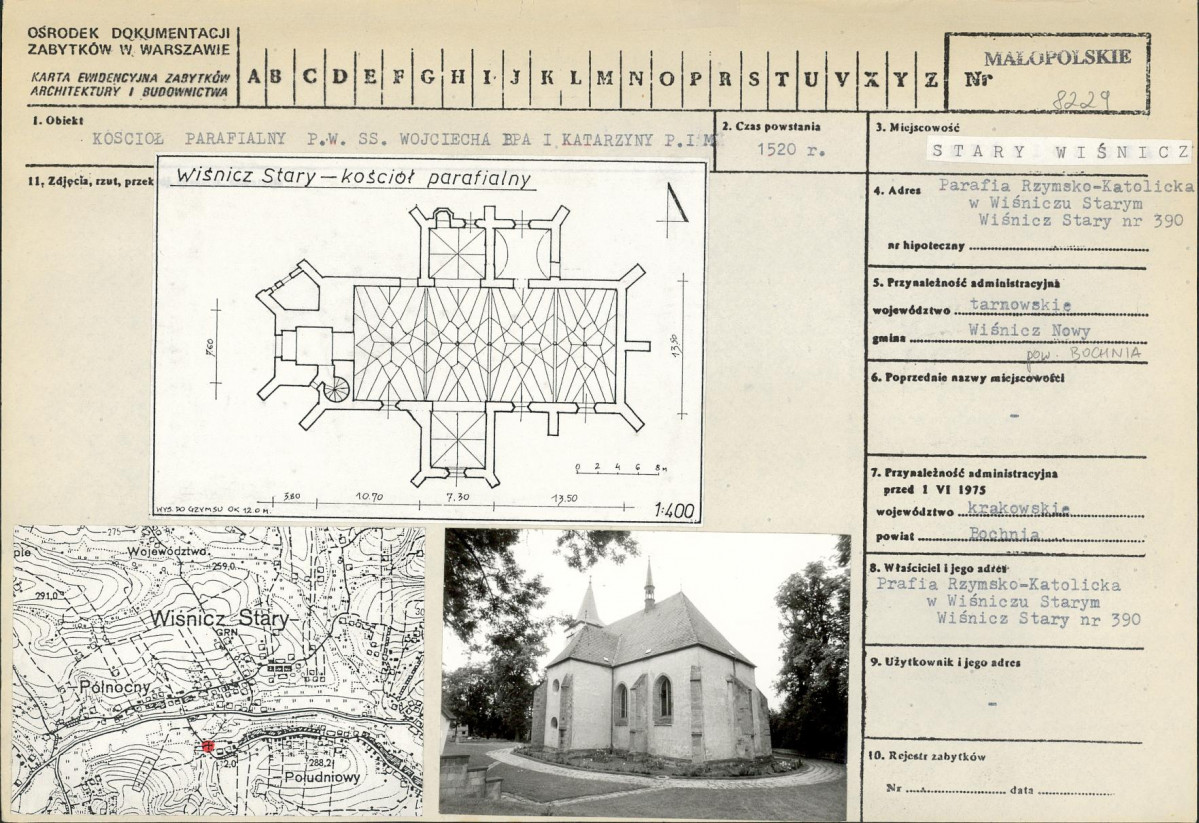 OŚRODEK DOKUMENTACJI
ZABYTKÓW W WARSZAWIE
KARTA EWIDENCYJNA ZABYTKÓW
ARCHITEKTURY I BUDOWNICTWA
A B C D E F G H I J K L M N O P R S T U V X Y Z
Nr
MAŁOPOLSKIE
8229
1. Obiekt
KOŚCIOŁ PARAFIALNY P.W. SS. WOJCIECHA BPA I KATARZYNY P.I M
2. Czas powstania
1520 r.
3. Miejscowość
STARY WIŚNICZ
11, Zdjęcia, rzut, przek
Wiśnicz Stary — kościół parafialny
7.60
13.50
0 2 4 6 8 m
3.80 10.70 7.30 13.50
WYS. DO GZYMSU OK 12.0 M.
1:400
4. Adres
Parafia Rzymsko-Katolicka
w Wiśniczu Starym
Wiśnicz Stary nr 390
nr hipoteczny
5. Przynależność administracyjna
województwo tarnowskie
gmina Wiśnicz Nowy
pow. BOCHNIA
6. Poprzednie nazwy miejscowości
-
7. Przynależność administracyjna
przed 1 VI 1975
województwo krakowskie
powiat Bochnia
8. Właściciel i jego adres
Prafia Rzymsko-Katolicka
w Wiśniczu Starym
Wiśnicz Stary nr 390
9. Użytkownik i jego adres
-
10. Rejestr zabytków
Nr data
275
ple
Województwo
259,0
291,0
Wiśnicz Stary
GRN
Północny
2,0
288,2
Południowy